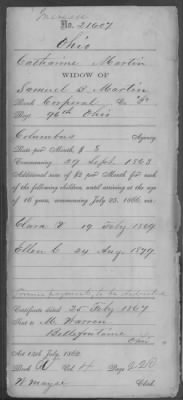 Increase
No. 21607
Ohio
Catharine Martin
WIDOW OF
Samuel S. Martin
Rank Corporal Co. "
Reg. 96th Ohio
Columbus Agency
Rate per Month, $ 8
Commencing 29 Sept. 1863
Additional sum of $2 per Month for each
of the following children, until arriving at the age
of 16 years, commencing July 25, 1866, viz:
Clara V 19 Feby 1869
Ellen C 24 Aug 1879
Former payments to be deducted
Certificate dated 25 Feby 1867
Sent to M. Warren
Bellefontaine
Ohio
Act 14th July, 1862.
Book A Vol. H Page 220
Clerk.